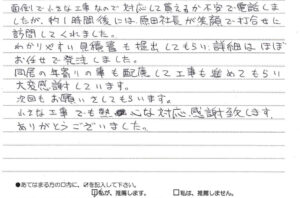 面倒で小さな工事なので対応して貰えるか不安で電話しま
したが、約1時間後には、原田社長が笑顔で打合せに
訪問してくれました。
わかりやすい見積書も提出してもらい、詳細はほぼ
お任せで発注しました。
同居の年寄りの事も配慮して工事も進めてもらい
大変感謝しています。
次回もお願いさしてもらいます。
小さな工事でも熱心な対応感謝致します。
ありがとうございました。
●あてはまる方の口内に、☑を記入して下さい。
☑私が、推薦します。 □私は、推薦しません。